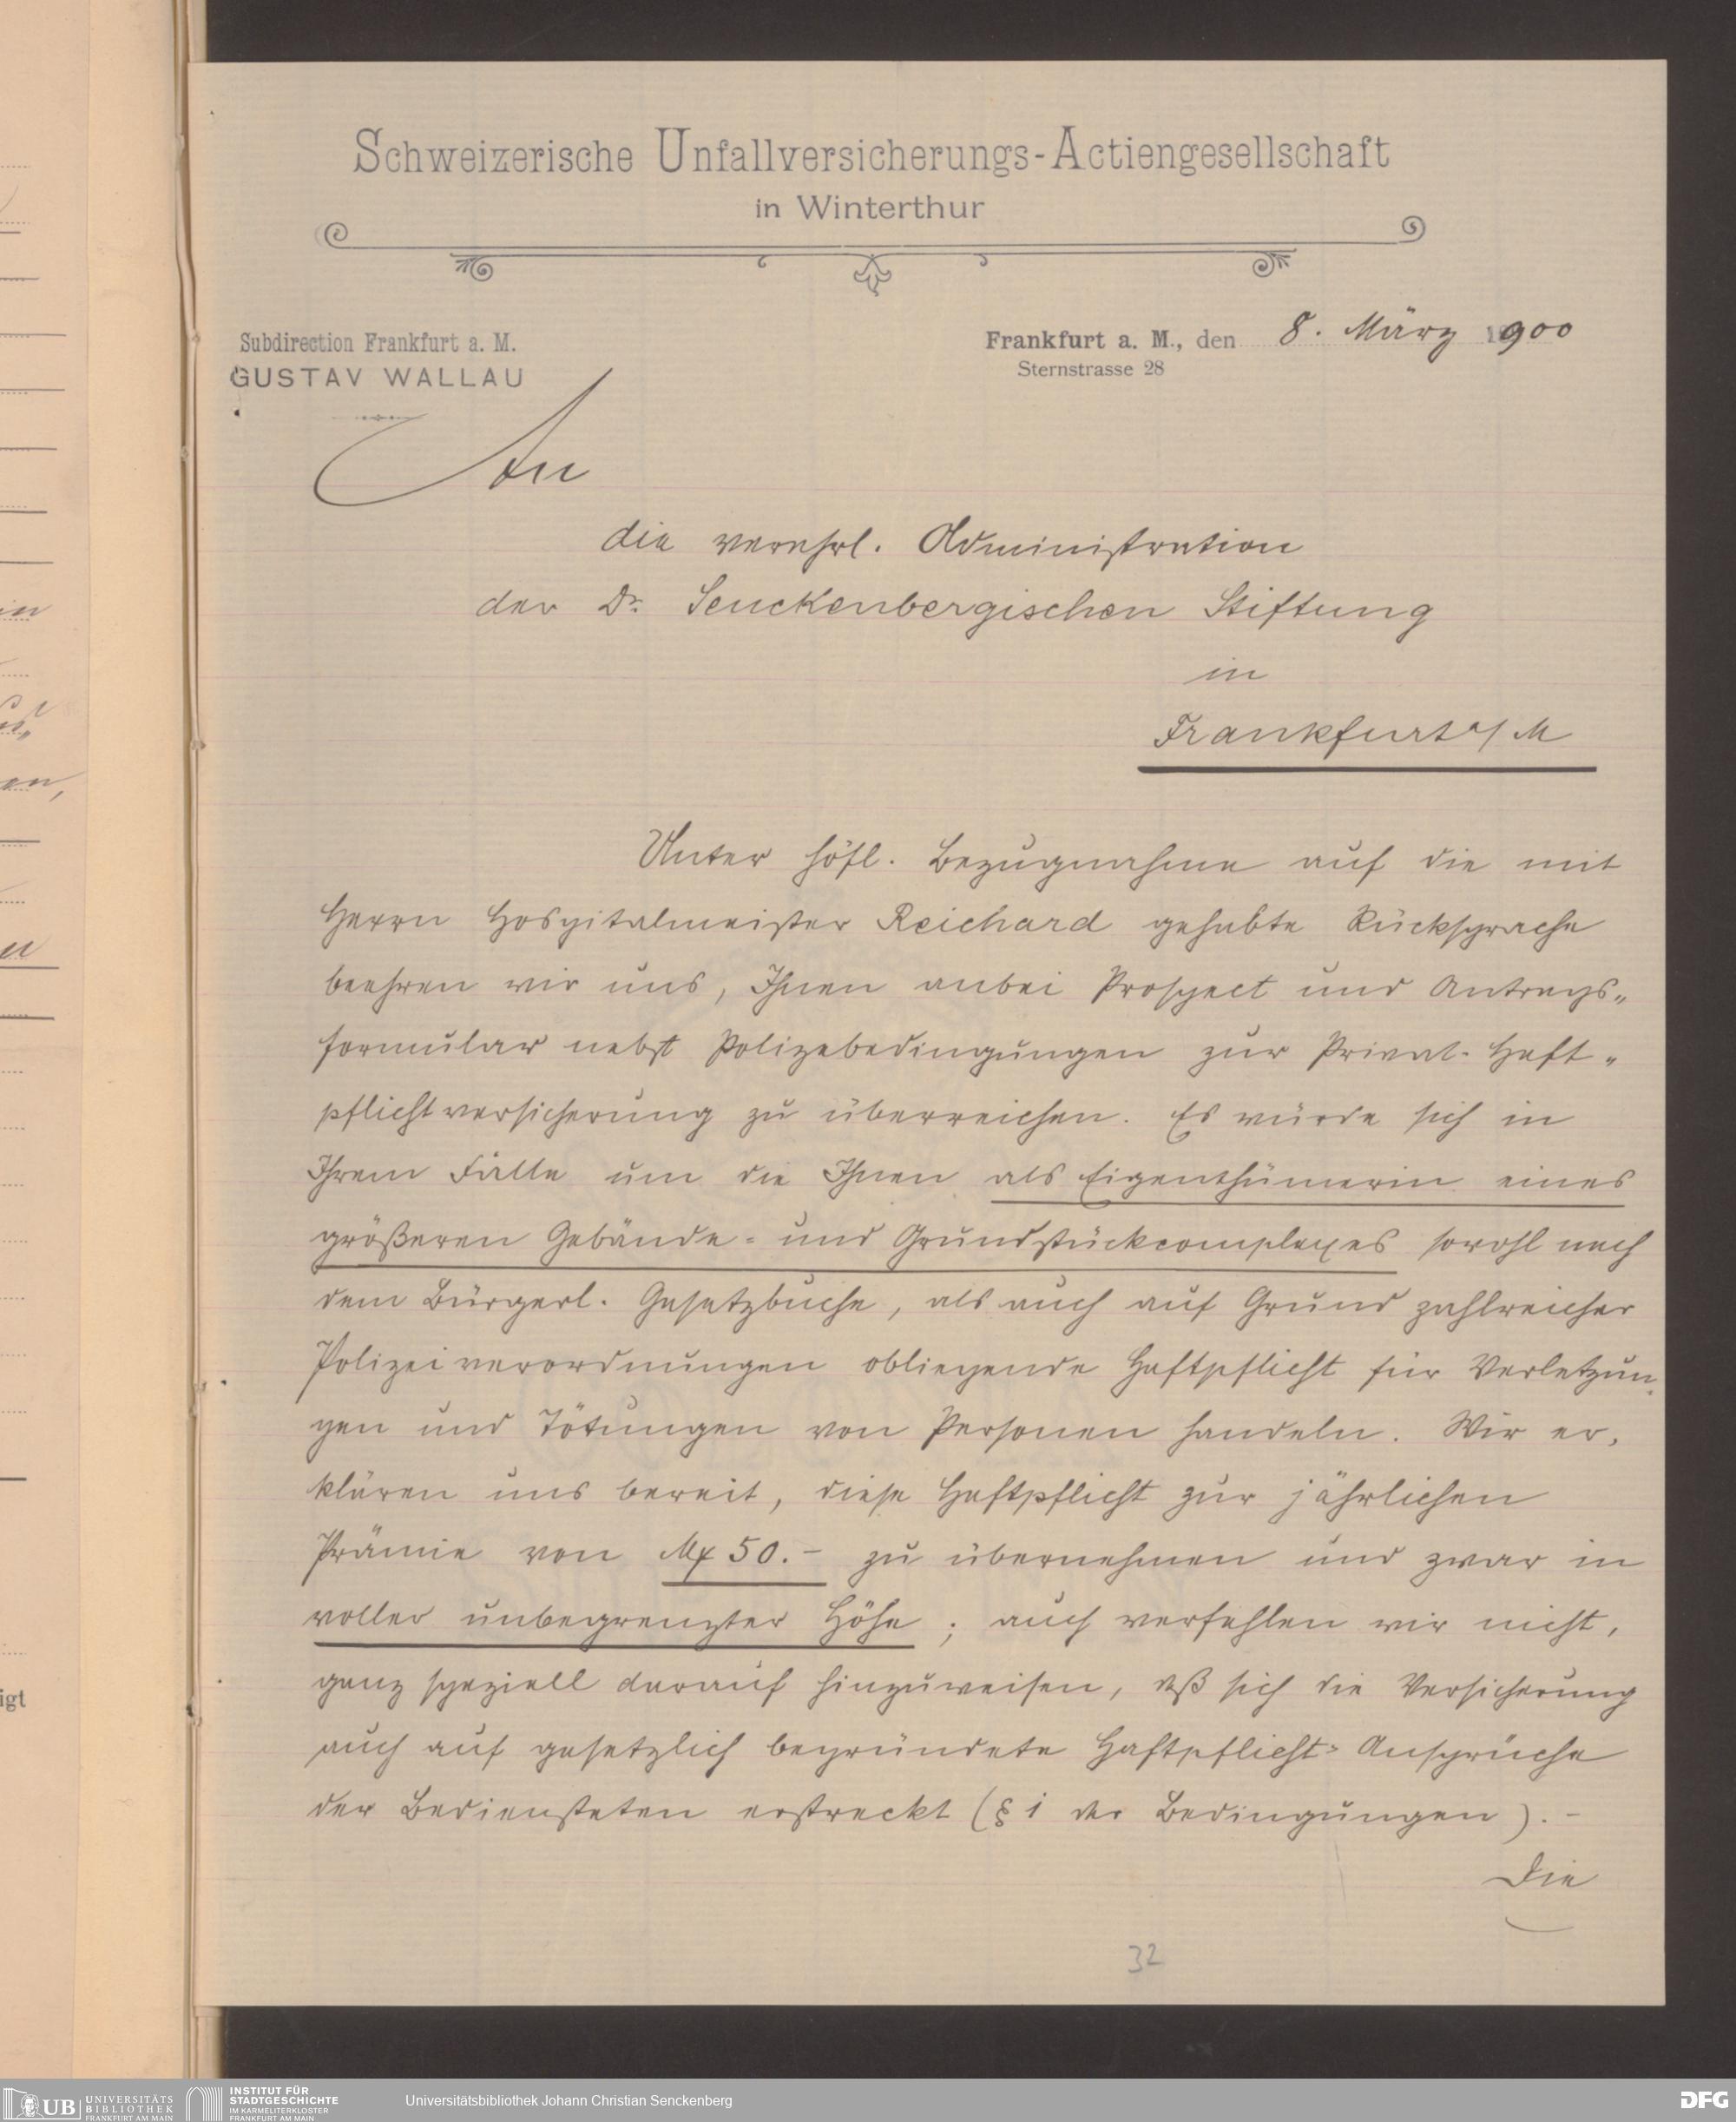 Schweizerische Unfallversicherungs-Actiengesellschaft
in Winterthur
Subdirection Frankfurt a. M.
GUSTAV WALLAU
Frankfurt a. M., den 8. März 1900
Sternstrasse 28
An
die verehrl. Administration
der Dr. Senckenbergischen Stiftung
in
Frankfurt a/M
Unter höfl. Bezugnahme auf die mit
Herrn Hospitalmeister Reichard gehabte Rücksprache
beehren wir uns, Ihnen anbei Prospect und Antrags„
formular nebst Polizebedingungen zur Privat-Haft„
pflichtversicherung zu überreichen. Es würde sich in
Ihrem Falle um die Ihnen als Eigenthümerin eines
größeren Gebäude- und Grundstückcomplexes sowohl nach
dem Bürgerl. Gesetzbuche, als auch auf Grund zahlreicher
Polizeiverordnungen obliegende Haftpflicht für Verletzun„
gen und Tötungen von Personen handeln. Wir er„
klären uns bereit, diese Haftpflicht zur jährlichen
Prämie von M 50.- zu übernehmen und zwar in
voller unbegrenzter Höhe; auch verfehlen wir nicht,
ganz speziell darauf hinzuweisen, daß sich die Versicherung
auch auf gesetzlich begründete Haftpflicht-Ansprüche
der Bediensteten erstreckt (§ 1 der Bedingungen). -
Die
32
in
en,
igt
UB UNIVERSITÄTS
BIBLIOTHEK
FRANKFURT AM MAIN
INSTITUT FÜR
STADTGESCHICHTE
IM KARMELITERKLOSTER
FRANKFURT AM MAIN
Universitätsbibliothek Johann Christian Senckenberg
DFG